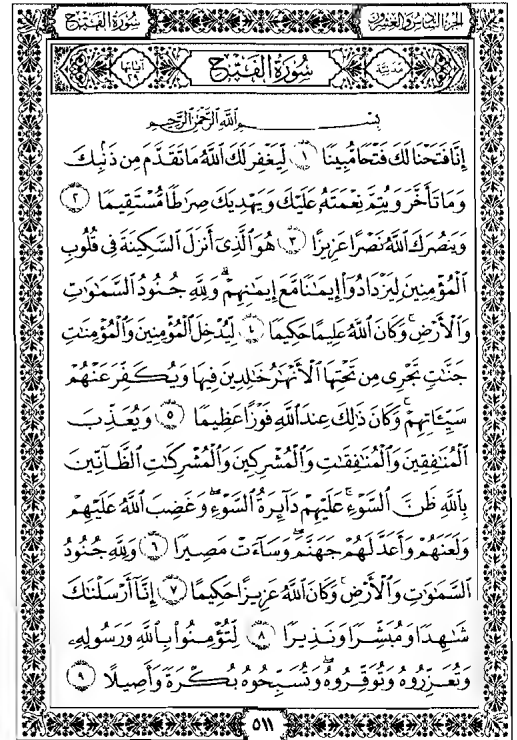 الجزء السادس والعشرون سورة الفتح
مدنية سُورَةُ الفَتْحِ آياتها ٢٩
بِسْمِ اللَّهِ الرَّحْمَٰنِ الرَّحِيمِ
إِنَّا فَتَحْنَا لَكَ فَتْحًا مُّبِينًا ١ لِّيَغْفِرَ لَكَ اللَّهُ مَا تَقَدَّمَ مِن ذَنۢبِكَ
وَمَا تَأَخَّرَ وَيُتِمَّ نِعْمَتَهُۥ عَلَيْكَ وَيَهْدِيَكَ صِرَٰطًا مُّسْتَقِيمًا ٢
وَيَنصُرَكَ اللَّهُ نَصْرًا عَزِيزًا ٣ هُوَ الَّذِىٓ أَنزَلَ السَّكِينَةَ فِى قُلُوبِ
الْمُؤْمِنِينَ لِيَزْدَادُوٓا۟ إِيمَٰنًا مَّعَ إِيمَٰنِهِمْ ۗ وَلِلَّهِ جُنُودُ السَّمَٰوَٰتِ
وَالْأَرْضِ ۚ وَكَانَ اللَّهُ عَلِيمًا حَكِيمًا ٤ لِّيُدْخِلَ الْمُؤْمِنِينَ وَالْمُؤْمِنَٰتِ
جَنَّٰتٍ تَجْرِى مِن تَحْتِهَا الْأَنْهَٰرُ خَٰلِدِينَ فِيهَا وَيُكَفِّرَ عَنْهُمْ
سَيِّـَٔاتِهِمْ ۚ وَكَانَ ذَٰلِكَ عِندَ اللَّهِ فَوْزًا عَظِيمًا ٥ وَيُعَذِّبَ
الْمُنَٰفِقِينَ وَالْمُنَٰفِقَٰتِ وَالْمُشْرِكِينَ وَالْمُشْرِكَٰتِ الظَّآنِّينَ
بِاللَّهِ ظَنَّ السَّوْءِ ۚ عَلَيْهِمْ دَآئِرَةُ السَّوْءِ ۖ وَغَضِبَ اللَّهُ عَلَيْهِمْ
وَلَعَنَهُمْ وَأَعَدَّ لَهُمْ جَهَنَّمَ ۖ وَسَآءَتْ مَصِيرًا ٦ وَلِلَّهِ جُنُودُ
السَّمَٰوَٰتِ وَالْأَرْضِ ۚ وَكَانَ اللَّهُ عَزِيزًا حَكِيمًا ٧ إِنَّآ أَرْسَلْنَٰكَ
شَٰهِدًا وَمُبَشِّرًا وَنَذِيرًا ٨ لِّتُؤْمِنُوا۟ بِاللَّهِ وَرَسُولِهِۦ
وَتُعَزِّرُوهُ وَتُوَقِّرُوهُ ۖ وَتُسَبِّحُوهُ بُكْرَةً وَأَصِيلًا ٩
٥١١